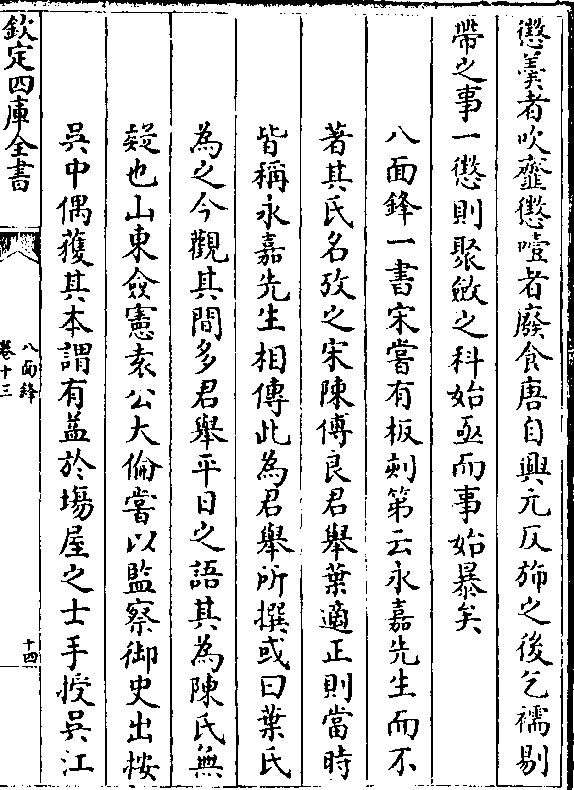 懲羮者吹虀懲噎者廢食唐自興元仄斾之後乞襦剔
帶之事一懲則聚斂之科始亟而事始暴矣
八面鋒一書宋嘗有板刻第云永嘉先生而不
著其氏名攷之宋陳傅良君舉葉適正則當時
皆稱永嘉先生相傳此為君舉所撰或曰葉氏
為之今觀其間多君舉平日之語其為陳氏無
疑也山東僉憲袁公大倫嘗以監察御史出按
吳中偶獲其本謂有益於場屋之士手授吳江
欽定四庫全書
八面鋒
卷十三
十四